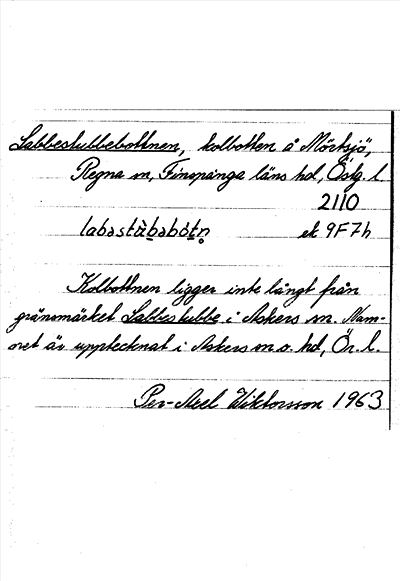 Labbestubbebottnen, kolbotten å Mörtsjö,
Regna sn, Finspånga läns hd, Östg. l.
2110
ek 9F7h
Kolbottnen ligger inte långt från
gränsmärket Labbestubbe i Askers sn. Nam-
net är upptecknat i Askers sn o. hd, Ör. l.
Per-Axel Wiktorsson 1963